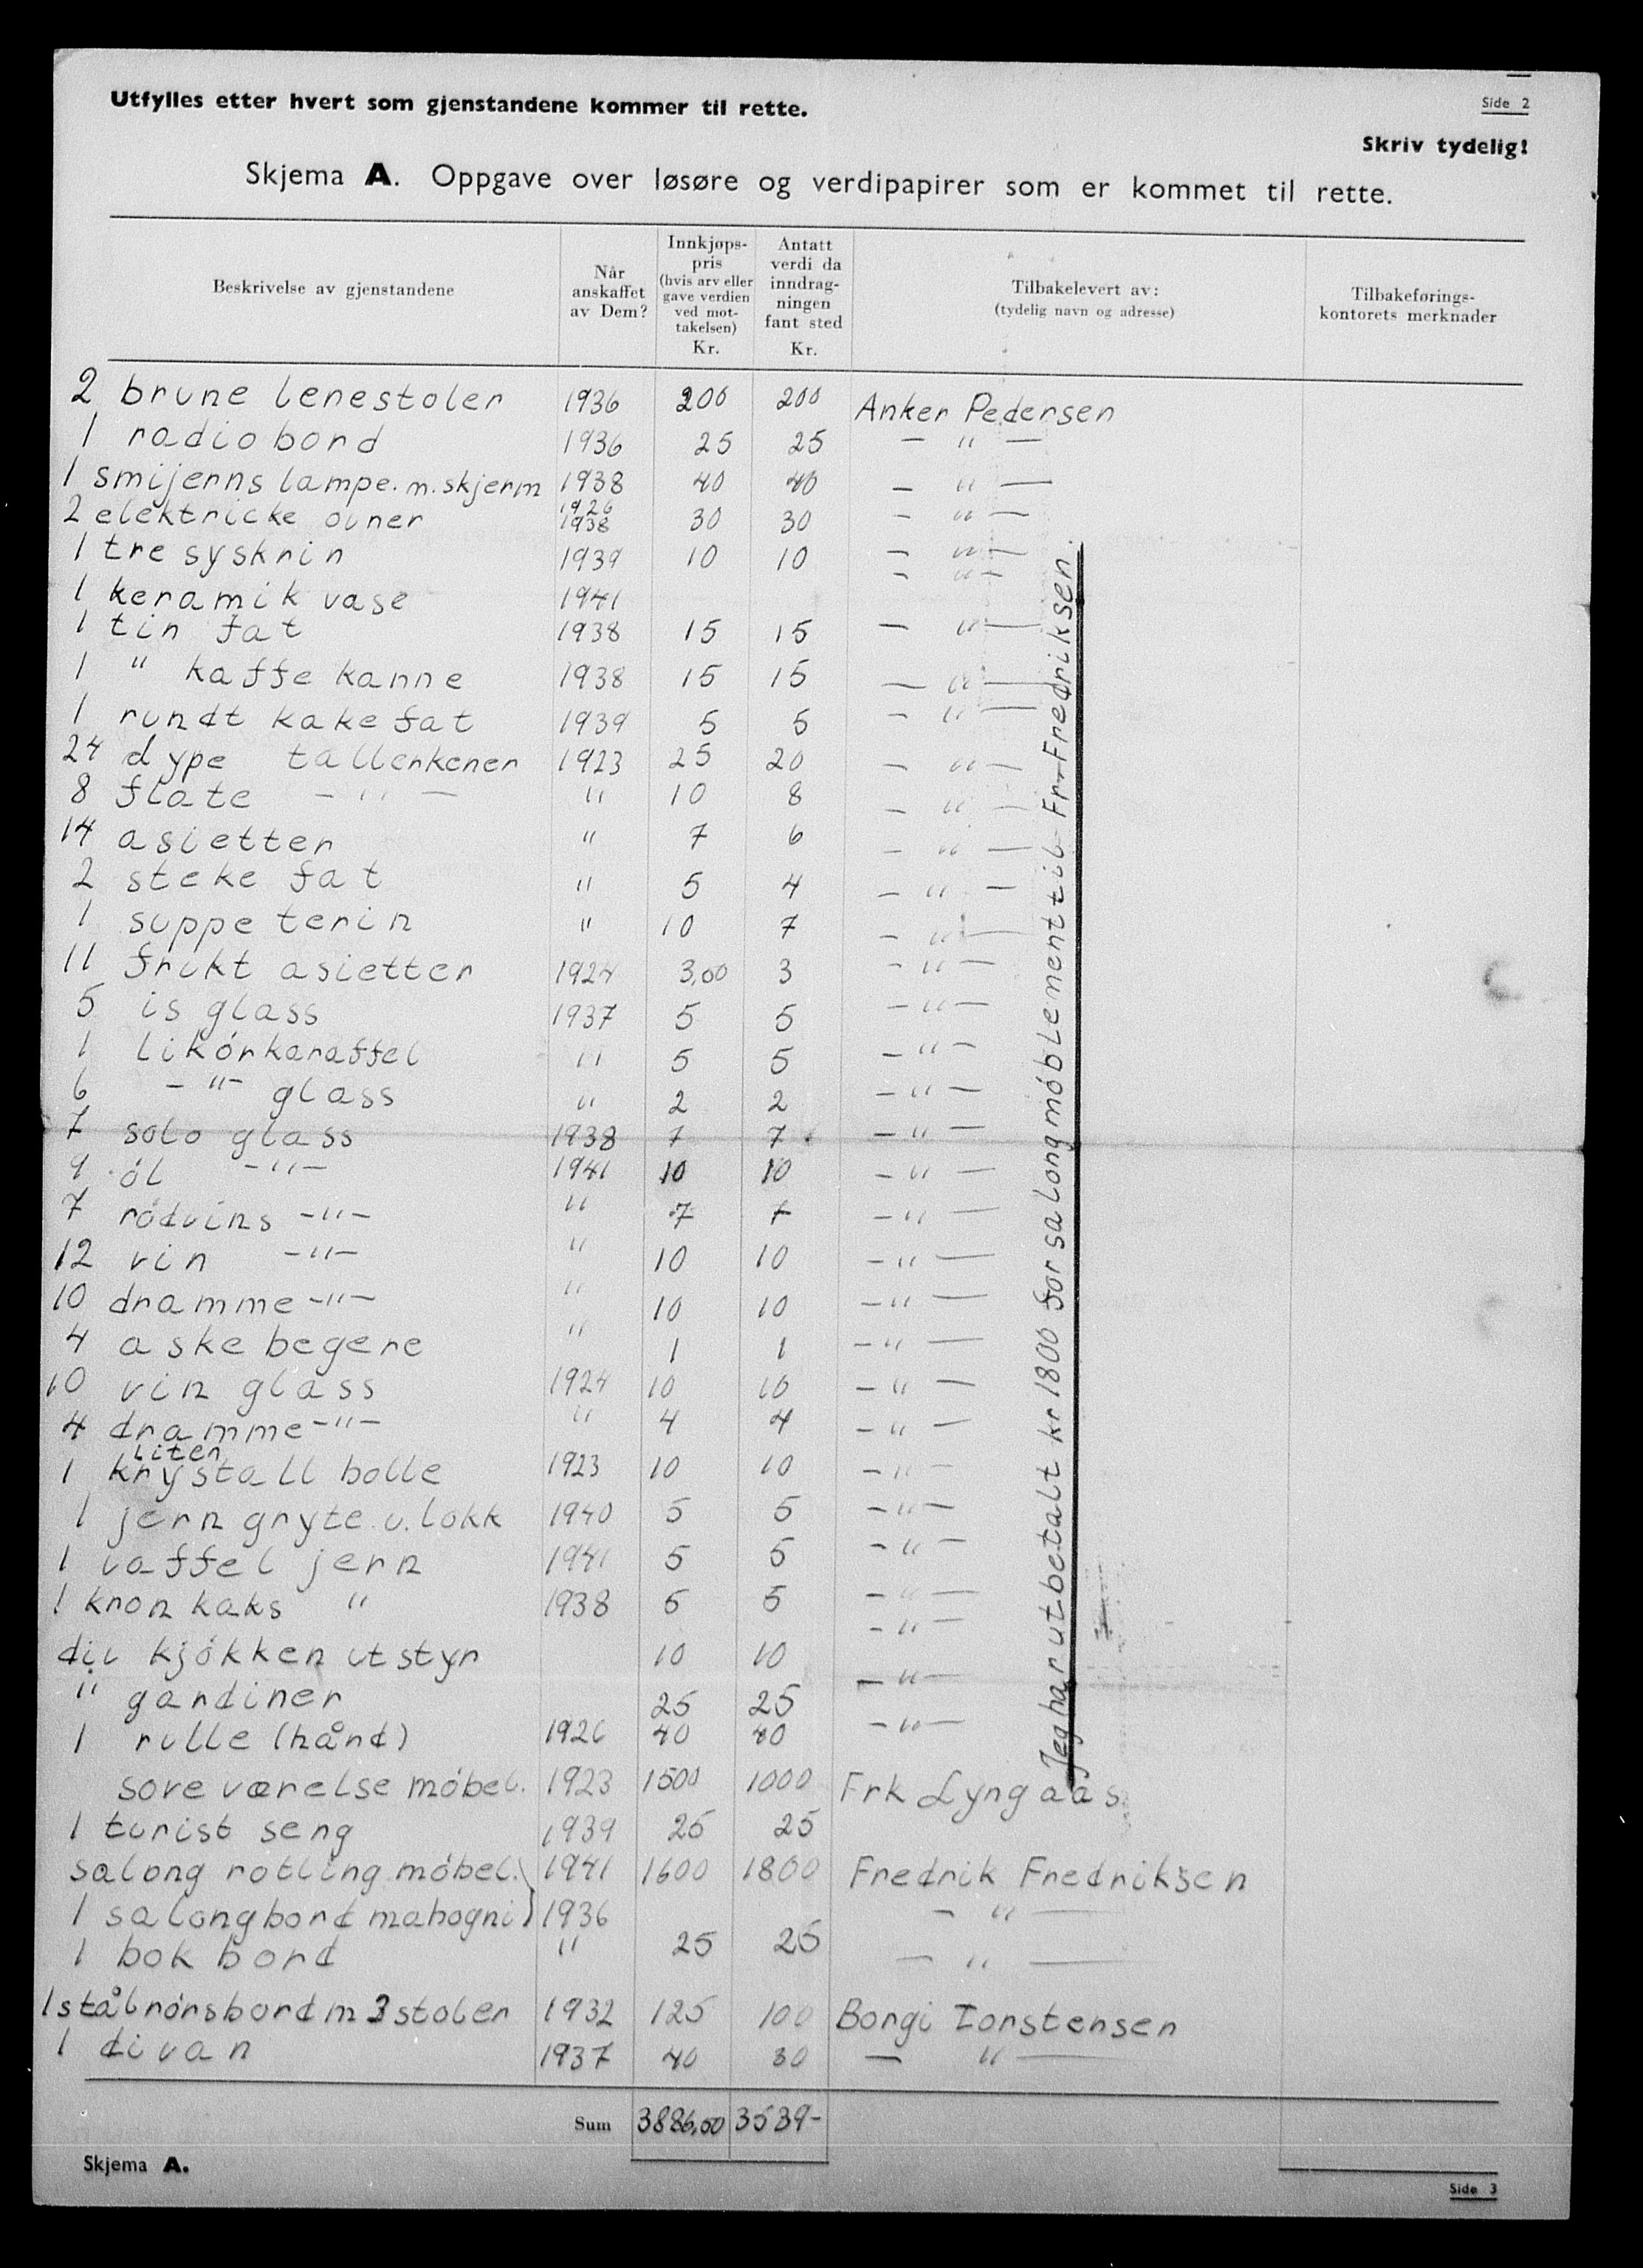 Utfylles etter hvert som gjenstandene kommer til rette.
Side 2
Skriv tydelig!
Skjema A. Oppgave over løsøre og verdipapirer som er kommet til rette.
Beskrivelse av gjenstandene
Når anskaffet av Dem?
Innkjøps-pris (hvis arv eller gave verdien ved mot-takelsen) Kr.
Antatt verdi da inndrag-ningen fant sted Kr.
Tilbakelevert av: (tydelig navn og adresse)
Tilbakeførings-kontorets merknader
2 brune lenestoler 1936 200 200 Anker Pedersen
1 radiobord 1936 25 25 — " —
1 smijerns lampe. m. skjerm 1938 40 40 — " —
2 elektricke ovner 1926 1938 30 30 — " —
1 tre syskrin 1939 10 10 — " —
1 keramik vase 1941 — " —
1 tin fat 1938 15 15 — " —
1 " kaffe kanne 1938 15 15 — " —
1 rundt kakefat 1939 5 5 — " —
24 dype tallerkener 1923 25 20 — " —
8 flate — " — " 10 8 — " —
14 asietter " 7 6 — " —
2 steke fat " 5 4 — " —
1 suppe terin " 10 7 — " —
11 frukt asietter 1924 3,00 3 — " —
5 is glass 1937 5 5 — " —
1 likörkaraffel " 5 5 — " —
6 — " — glass " 2 2 — " —
7 solo glass 1938 7 7 — " —
9 öl — " — 1941 10 10 — " —
7 rödvins — " — " 7 7 — " —
12 vin — " — " 10 10 — " —
10 dramme — " — " 10 10 — " —
4 askebegere " 1 1 — " —
10 vin glass 1924 10 10 — " —
4 dramme — " — " 4 4 — " —
1 liten krystall bolle 1923 10 10 — " —
1 jern gryte u. lokk 1940 5 5 — " —
1 vaffel jern 1941 5 5 — " —
1 kron kaks " 1938 5 5 — " —
div kjökken utstyr 10 10 — " —
" gardiner 25 25 — " —
1 rulle (hånd) 1926 40 40 — " —
soveværelse möbel. 1923 1500 1000 Frk Lyngaas
1 turist seng 1939 25 25
salong rotting möbel. 1941 1600 1800 Fredrik Fredriksen
1 salongbord mahogni) 1936 — " —
1 bok bord " 25 25 — " —
1 stålrörsbord m 3 stoler 1932 125 100 Borgi Torstensen
1 divan 1937 40 30 — " —
Jeg har utbetalt kr 1800 for salongmöblement til Fr. Fredriksen.
Sum 3886,00 3539-
Skjema A.
Side 3